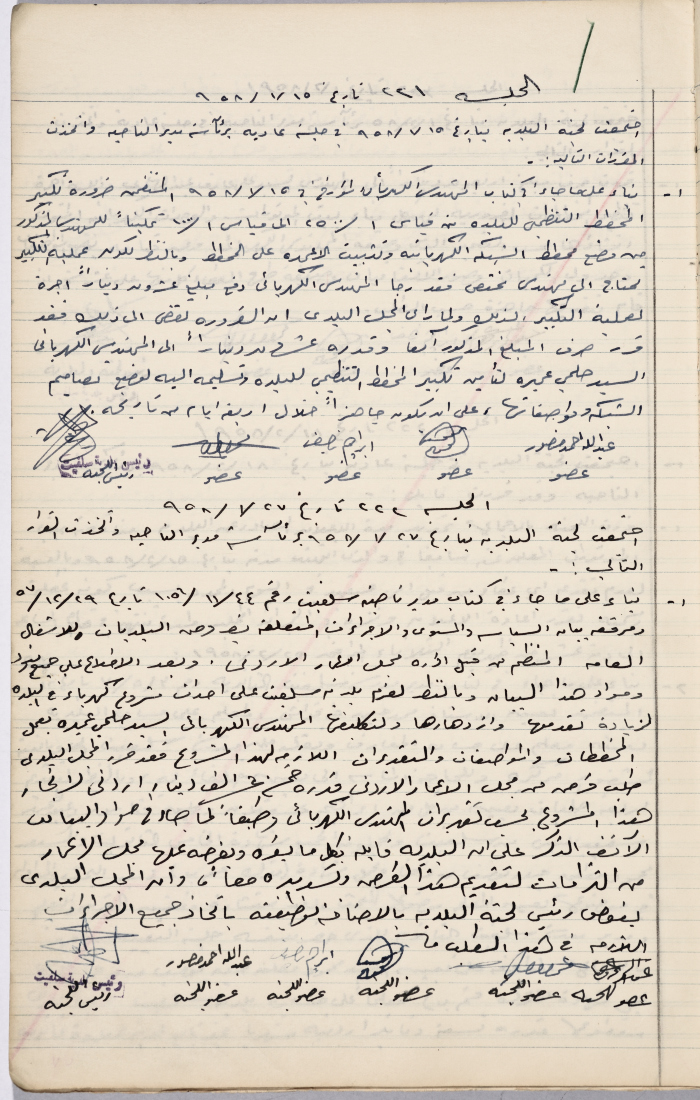 الجلسه ٢٢١ تاريخ ١٥/١/٩٥٨
اجتمعت لجنة البلديه بتاريخ ١٥/١/٩٥٨ في جلسة عاديه برئاسة مدير الناحيه واتخذت
المقررات التاليه :-
١- بناء على ما جاء في كتاب المهندس الكهربائي المؤرخ في ١٥/١/٩٥٨ المتضمن ضرورة تكبير
المخطط التنظيمي للبلده من قياس ١/٢٥٠٠ الى قياس ١/١٠٠٠ تمكيناً للمهندس المذكور
من وضع مخطط الشبكه الكهربائيه وتثبيت الاعمده على المخطط وبالنظر لكون عملية التكبير
تحتاج الى مهندس مختص فقد رجا المهندس الكهربائي دفع مبلغ عشرون ديناراً اجرة
لعملية التكبير لذلك ولما راى المجلس البلدي ان الضروره تقضي الى ذلك فقد
قرر صرف المبلغ المذكور آنفا وقدره عشرون ديناراً الى المهندس الكهربائي
السيد حلمي عميره لتأمين تكبير المخطط التنظيمي للبلده وتسليمه اليه لوضع تصاميم
الشبكه ومواصفاتها ، على ان يكون جاهزاً خلال اربعة ايام من تاريخه .
عبدالله احمد منصور ابراهيم
عضو عضو عضو عضو رئيس اللجنه
رئيس بلدية سلفيت
الجلسه ٢٢٢ تاريخ ٢٧/١/٩٥٨
اجتمعت لجنة البلديه بتاريخ ٢٧/١/٩٥٨ برئاسة مدير الناحيه واتخذت القرار
التالي :-
١- بناء على ما جاء في كتاب مدير ناحية سلفيت رقم تاريخ ٢٩/١٢/٥٧
ومرفقه بيان السياسه والمستوى والاجراءات المتعلقه بقروض البلديات وللاشغال
العامه المنظم من قبل ادارة مجلس الاعمار الاردني . وبعد الاطلاع على جميع
ومواد هذا البيان وبالنظر لعزم بلدية سلفيت على احداث مشروع كهرباء في البلده
لزيادة تقدمها وازدهارها ولتكليفها المهندس الكهربائي السيد حلمي عميره بعمل
المخططات والمواصفات والتقديرات اللازمه لهذا المشروع فقد قرر المجلس البلدي
طلب قرض من مجلس الاعمار الاردني قدره خمسة عشر الف دينار اردني لانجاز
هذا المشروع بحسب تقديرات المهندس الكهربائي وطبقاً لما جاء في مواد البيان
الآنف الذكر على ان البلديه قابله بكل ما يقره ويفرضه عليها مجلس الاعمار
من التزامات لتقديم هذا القرض وتسديده وأن المجلس البلدي
يفوض رئيس لجنة البلديه بالاضافه لوظيفته باتخاذ جميع الاجراءات
اللازمه في هذا الطلب
عبدالله احمد منصور ابراهيم
عضو اللجنه عضو اللجنه عضو اللجنه عضو اللجنه عضو اللجنه رئيس اللجنه
رئيس بلدية سلفيت